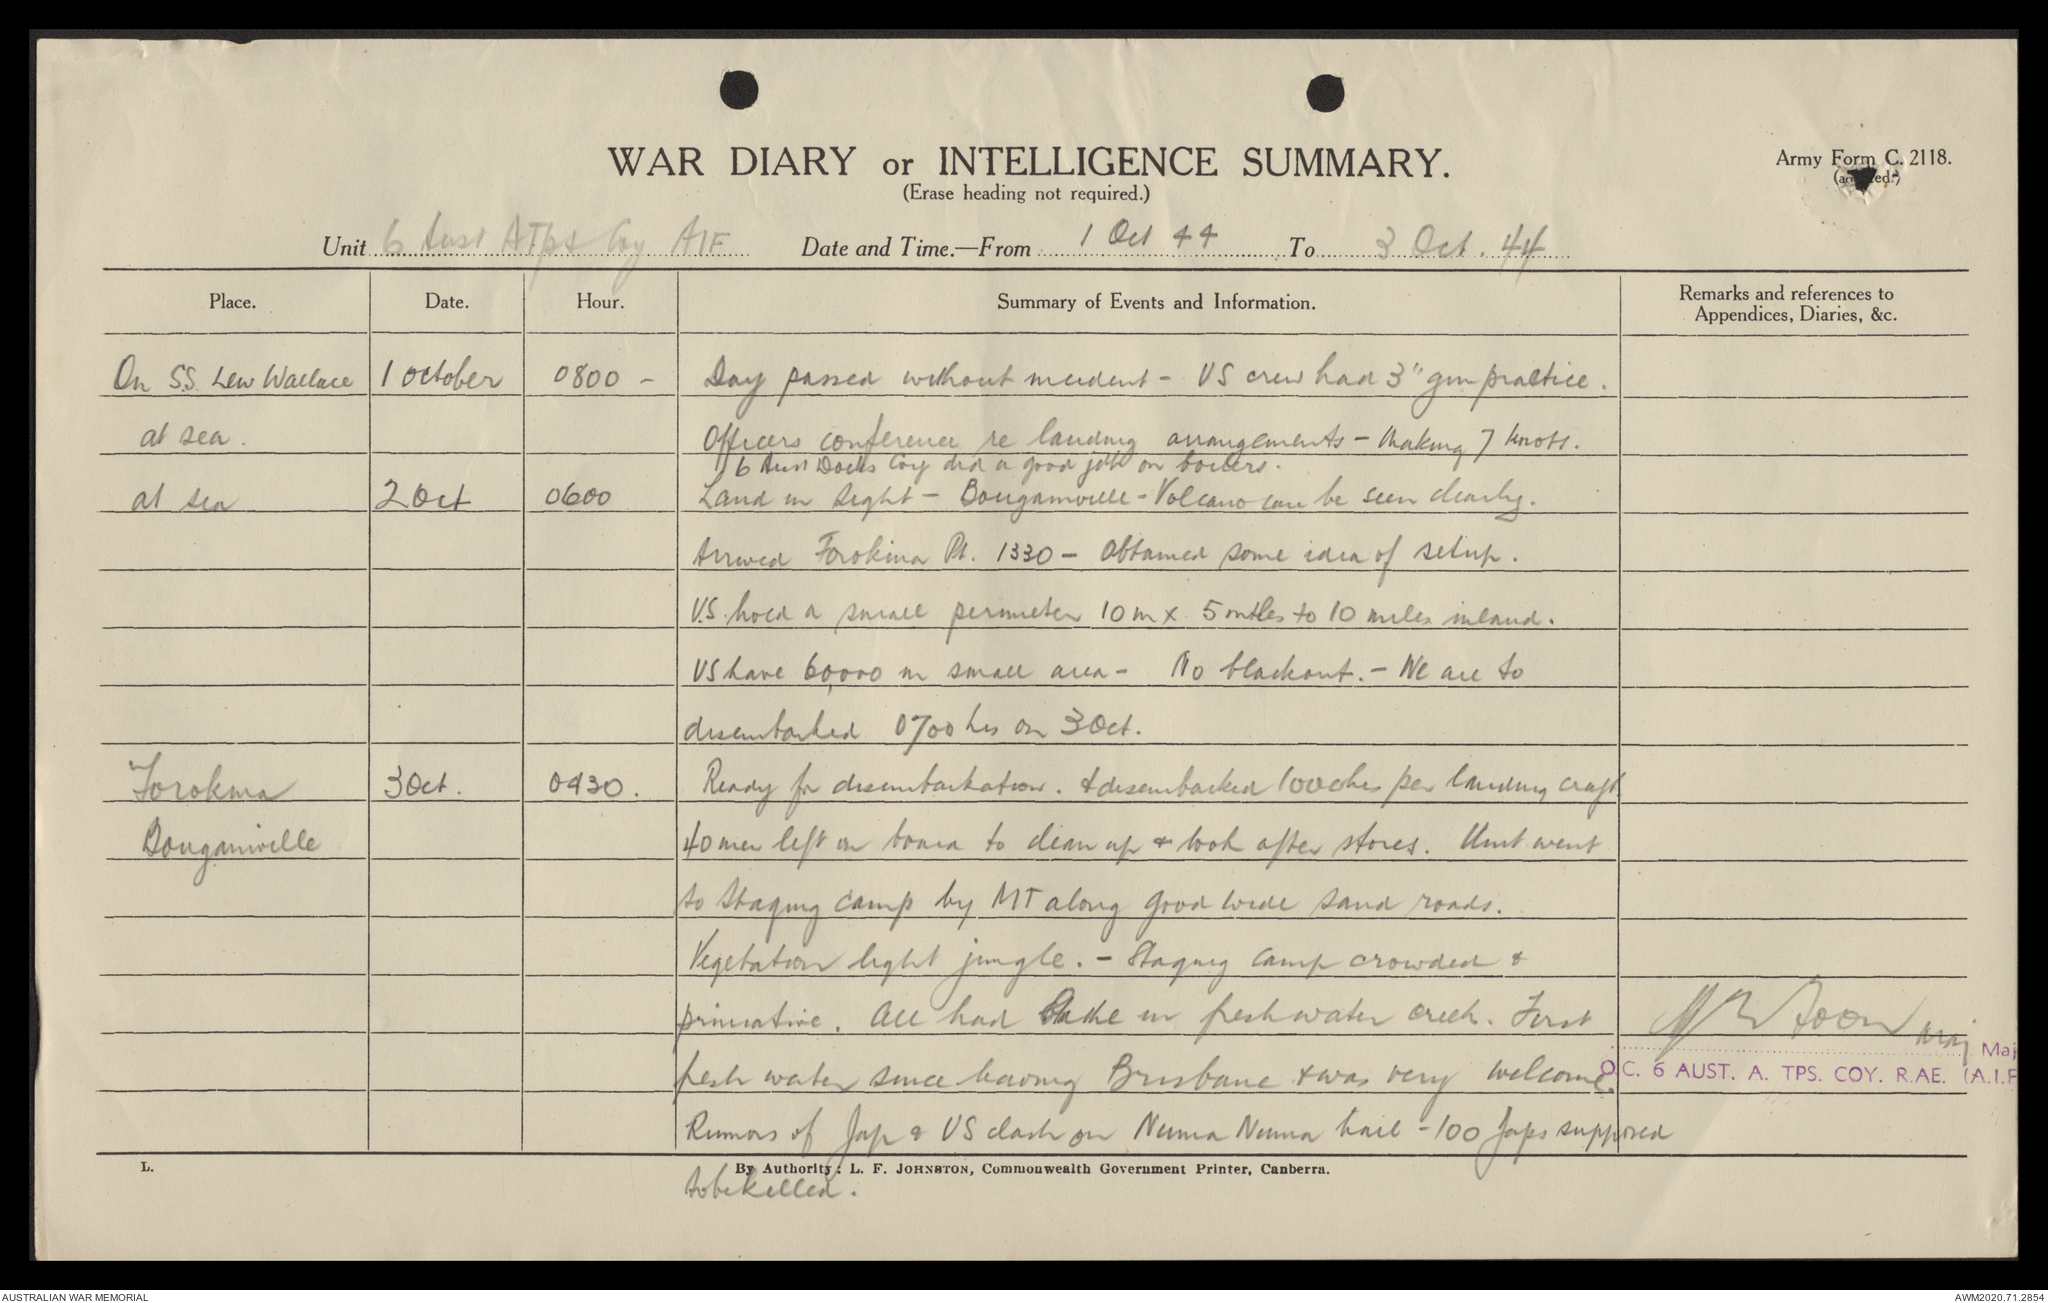 WAR DIARY or INTELLIGENCE SUMMARY.
(Erase heading not required.)
Army Form C. 2118.
Unit 6 Aust A Tps Coy AIF Date and Time.—From 1 Oct 44 To 3 Oct. 44
Place. Date. Hour. Summary of Events and Information. Remarks and references to
Appendices, Diaries, &c.
On S.S. Lew Wallace 1 October 0800 - Day passed without incident - US crew had 3" gun practice.
at sea. Officers conference re landing arrangements - Making 7 knots.
6 Aust Docks Coy did a good job on boilers.
at sea 2 Oct 0600 Land in sight - Bougainville - Volcano can be seen clearly.
Arrived Torokina Pt. 1330 - Obtained some idea of setup.
US. hold a small perimeter 10 m x 5 miles to 10 miles inland.
US have 60,000 in small area - No blackout. - We are to
disembarked 0700 hrs on 3 Oct.
Torokina 3 Oct. 0430. Ready for disembarkation. & disembarked 100 ohs per landing craft
Bougainville 40 men left on board to clean up & look after stores. Unit went
to Staging camp by MT along good wide sand roads.
Vegetation light jungle. - Staging camp crowded &
primative. All had bathe in fresh water creek. First
fresh water since leaving Brisbane & was very welcome.
Maj
Maj
O.C. 6 AUST. A. TPS. COY. R.A.E. (A.I.F
Rumors of Jap & US clash on Numa Numa trail - 100 Japs supposed
to be killed.
L. By Authority: L. F. JOHNSTON, Commonwealth Government Printer, Canberra.
AUSTRALIAN WAR MEMORIAL AWM2020.71.2854